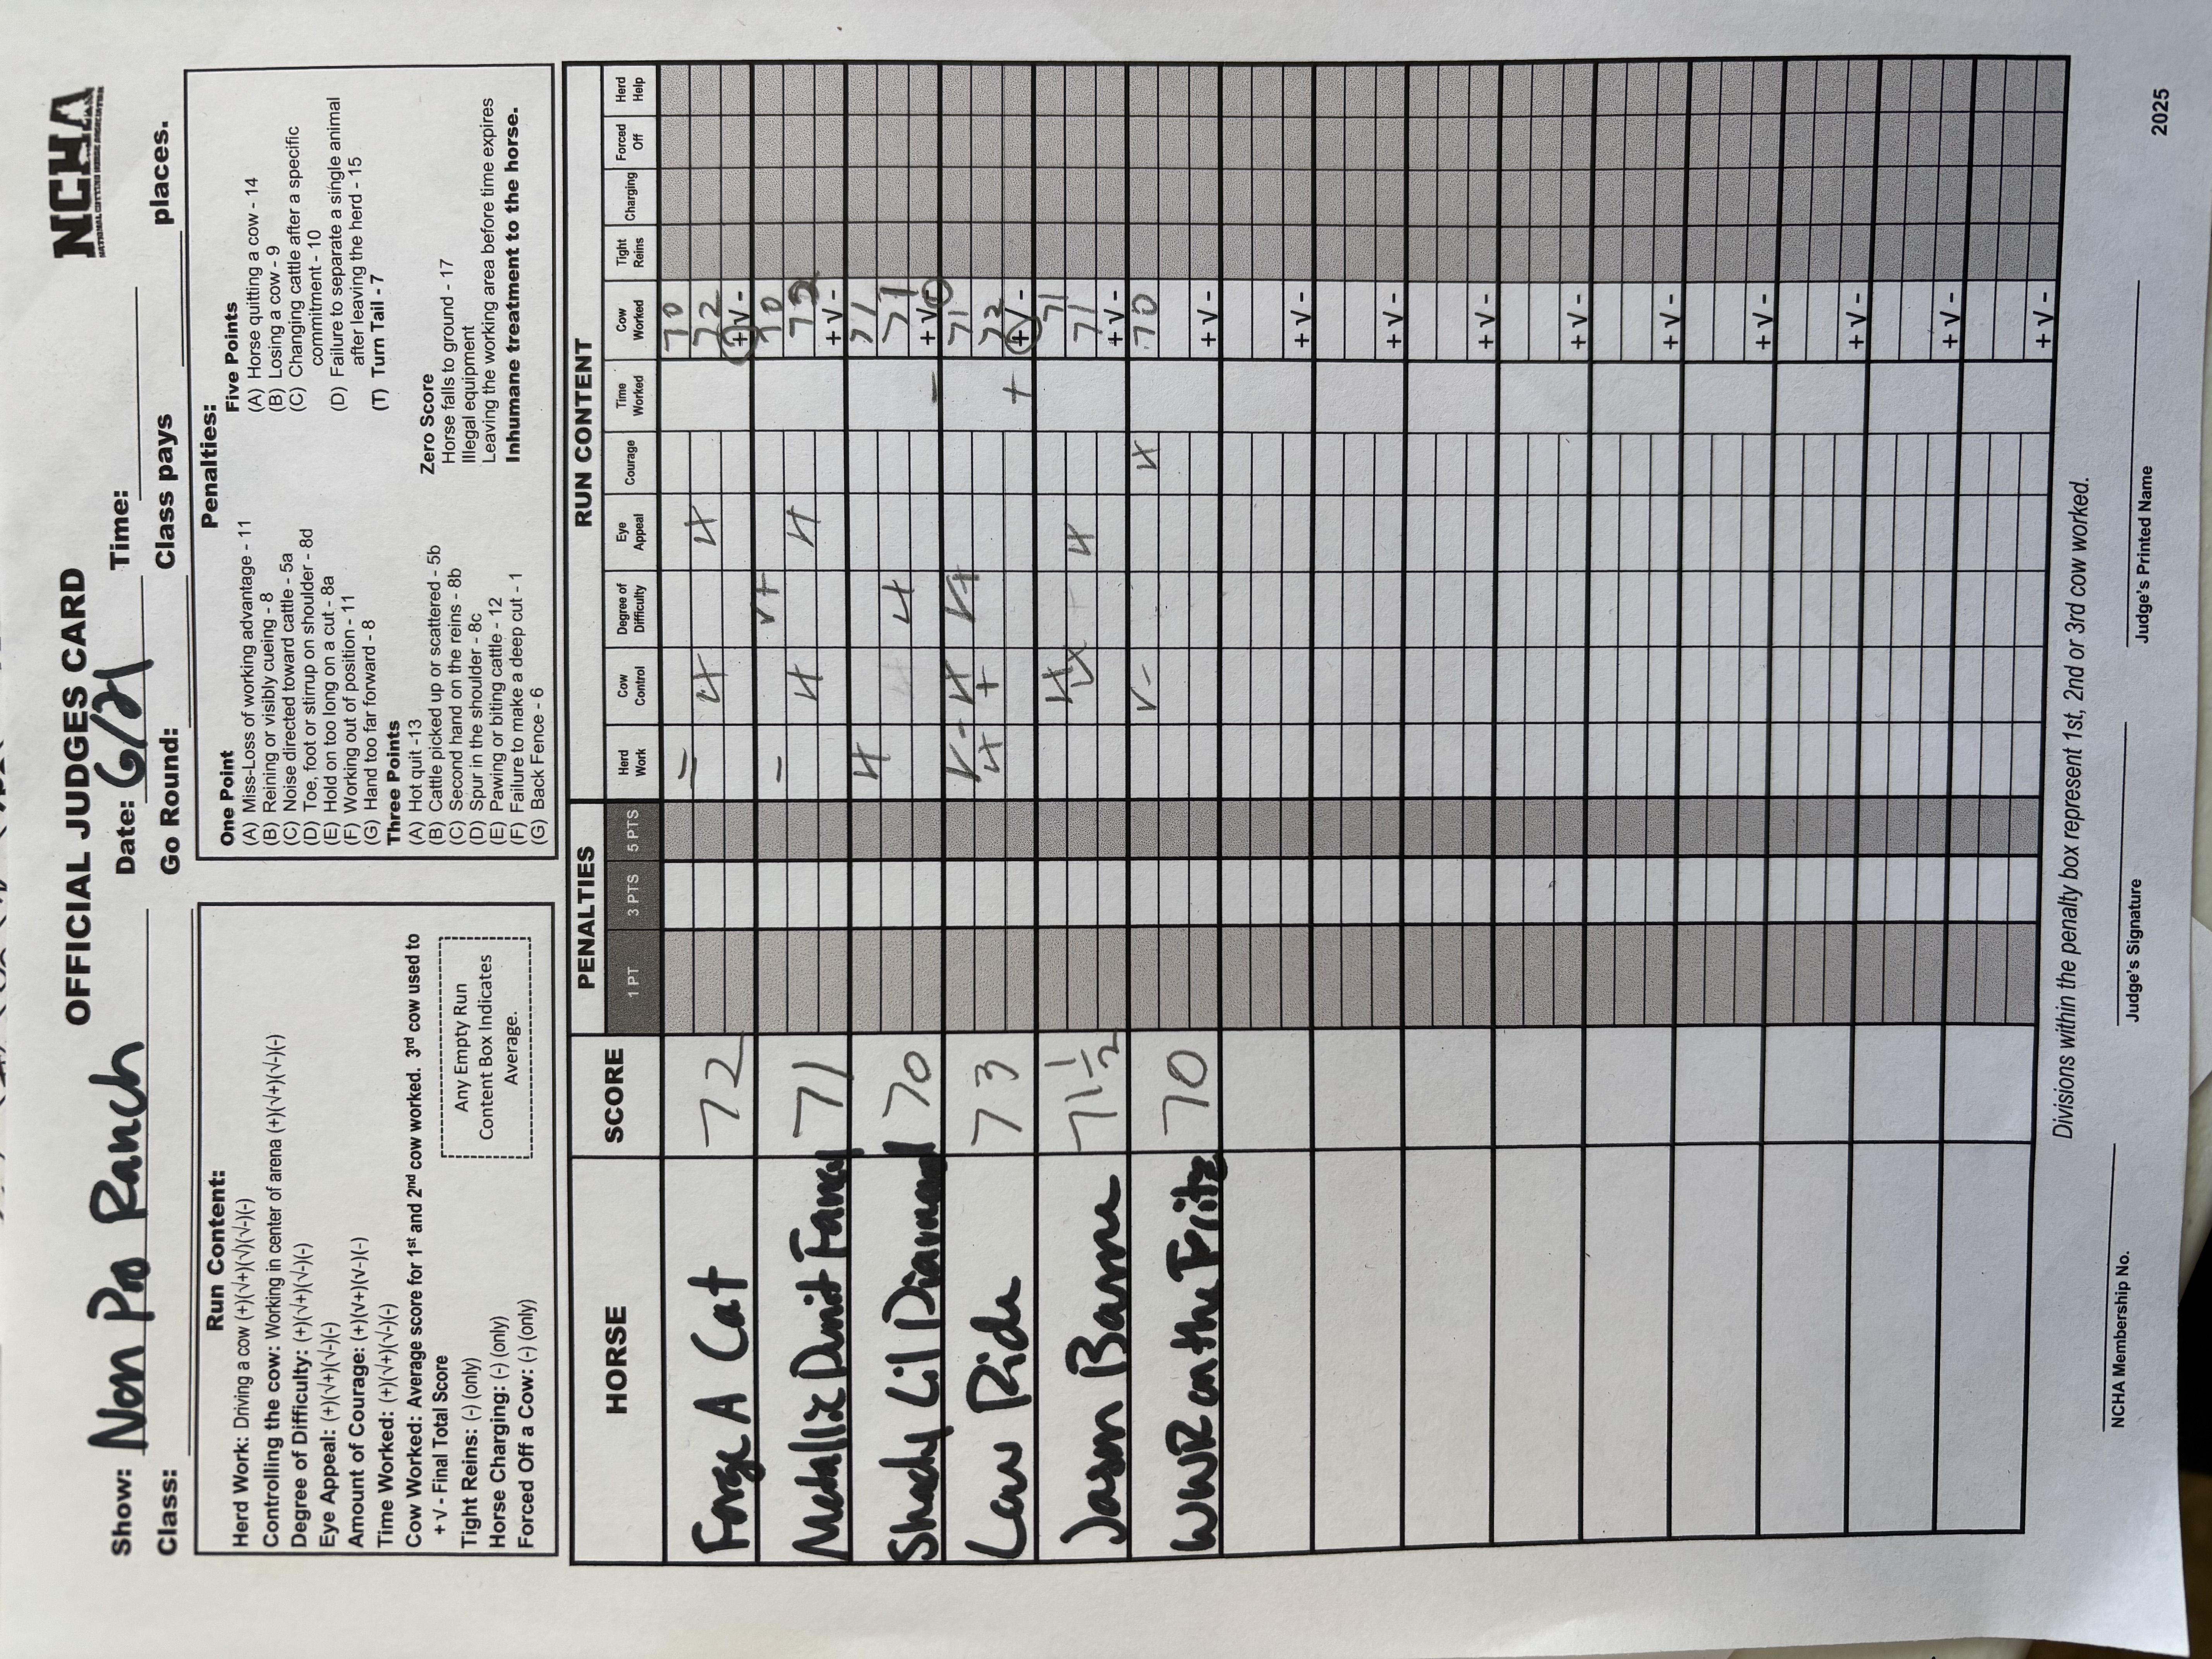 NCHA
NATIONAL CUTTING HORSE ASSOCIATION
OFFICIAL JUDGES CARD
Show: Non Pro Ranch Date: 6/21 Time:
Class: Go Round: Class pays places.
Run Content:
Herd Work: Driving a cow (+)(√+)(√)(√-)(-)
Controlling the cow: Working in center of arena (+)(√+)(√-)(-)
Degree of Difficulty: (+)(√+)(√-)(-)
Eye Appeal: (+)(√+)(√-)(-)
Amount of Courage: (+)(v+)(v-)(-)
Time Worked: (+)(√+)(√-)(-)
Cow Worked: Average score for 1st and 2nd cow worked. 3rd cow used to
+ √ - Final Total Score
Tight Reins: (-) (only)
Horse Charging: (-) (only)
Forced Off a Cow: (-) (only)
Any Empty Run
Content Box Indicates
Average.
Penalties:
One Point
(A) Miss-Loss of working advantage - 11
(B) Reining or visibly cueing - 8
(C) Noise directed toward cattle - 5a
(D) Toe, foot or stirrup on shoulder - 8d
(E) Hold on too long on a cut - 8a
(F) Working out of position - 11
(G) Hand too far forward - 8
Three Points
(A) Hot quit -13
(B) Cattle picked up or scattered - 5b
(C) Second hand on the reins - 8b
(D) Spur in the shoulder - 8c
(E) Pawing or biting cattle - 12
(F) Failure to make a deep cut - 1
(G) Back Fence - 6
Five Points
(A) Horse quitting a cow - 14
(B) Losing a cow - 9
(C) Changing cattle after a specific
commitment - 10
(D) Failure to separate a single animal
after leaving the herd - 15
(T) Turn Tail - 7
Zero Score
Horse falls to ground - 17
Illegal equipment
Leaving the working area before time expires
Inhumane treatment to the horse.
HORSE SCORE PENALTIES RUN CONTENT
1 PT 3 PTS 5 PTS Herd Work Cow Control Degree of Difficulty Eye Appeal Courage Time Worked Cow Worked Tight Reins Charging Forced Off Herd Help
= 70
Forge A Cat 72 √+ √+ 72
+ √ -
- √+ 70
Metallic Dunit Fancy 71 √+ √+ 72
+ √ -
√+ 71
Shady Lil Diamond 70 √+ 71
- + √ -
√- √+ √+ 71
Law Ride 73 √+ + 72
+ + √ -
√+ 71
Jason Barne 71 1/2 √+ 71
+ √ -
√- √+ 70
WWR on the Fritz 70
+ √ -
+ √ -
+ √ -
+ √ -
+ √ -
+ √ -
+ √ -
+ √ -
+ √ -
+ √ -
Divisions within the penalty box represent 1st, 2nd or 3rd cow worked.
NCHA Membership No. Judge's Signature Judge's Printed Name
2025